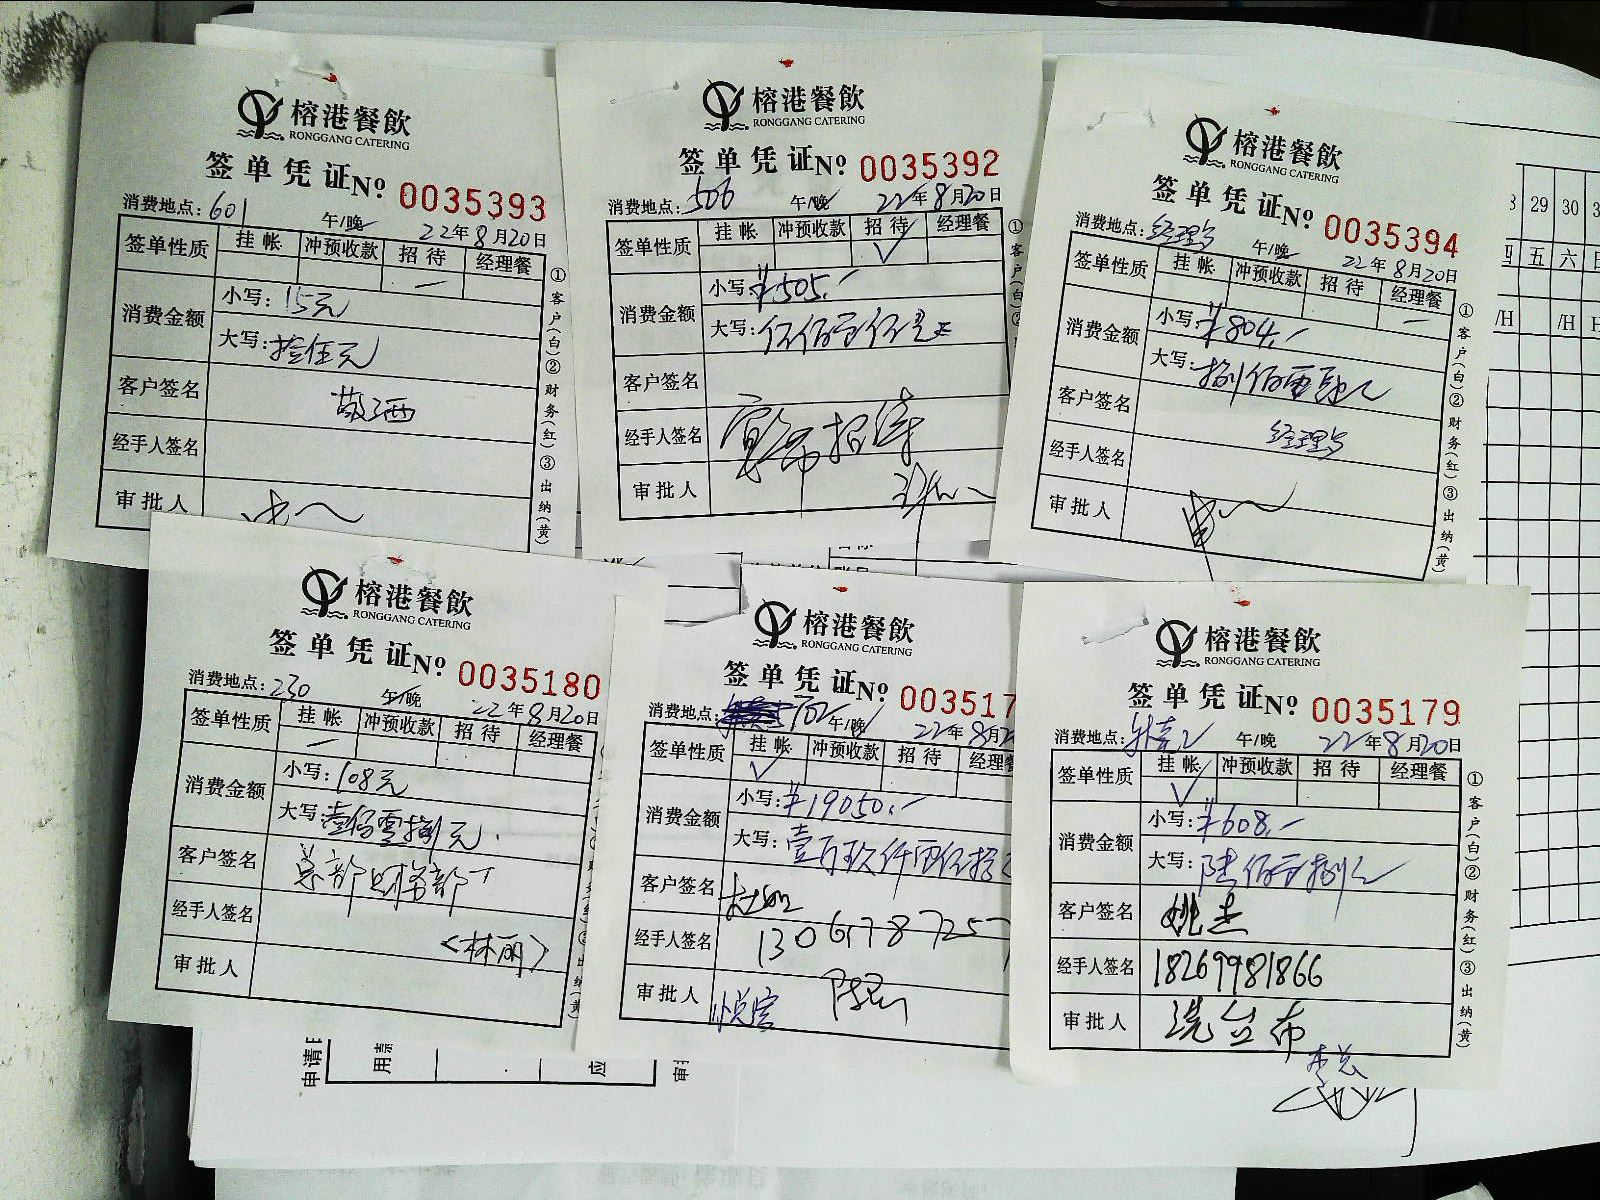 榕港餐飲
RONGGANG CATERING
签单凭证No 0035393
消费地点:601 午/晚 22年8月20日
签单性质 挂帐 冲预收款 招待 经理餐
消费金额 小写:15元
大写:拾伍元
客户签名
经手人签名
审批人
①客户(白)②财务(红)③出纳(黄)
榕港餐飲
RONGGANG CATERING
签单凭证No 0035392
消费地点:506 午/晚 22年8月20日
签单性质 挂帐 冲预收款 招待 经理餐
消费金额 小写:¥505.-
大写:伍佰零伍元
客户签名
经手人签名 招待
审批人
①客户(白)②
榕港餐飲
RONGGANG CATERING
签单凭证No 0035394
消费地点:经理餐 午/晚 22年8月20日
签单性质 挂帐 冲预收款 招待 经理餐
消费金额 小写:¥804.-
大写:捌佰零肆元
客户签名
经手人签名 经理餐
审批人
①客户(白)②财务(红)③出纳(黄)
29 30
五 六
/H /H
榕港餐飲
RONGGANG CATERING
签单凭证No 0035180
消费地点:230 午/晚 22年8月20日
签单性质 挂帐 冲预收款 招待 经理餐
消费金额 小写:108元
大写:壹佰零捌元
客户签名 总部财务部
经手人签名 <林丽>
审批人
榕港餐飲
RONGGANG CATERING
签单凭证No 003517
消费地点:702 午/晚 22年8月2
签单性质 挂帐 冲预收款 招待 经理
消费金额 小写:¥19050.-
大写:壹万玖仟零伍拾
客户签名
经手人签名 1306178725
审批人 悦宴
榕港餐飲
RONGGANG CATERING
签单凭证No 0035179
消费地点: 午/晚 22年8月20日
签单性质 挂帐 冲预收款 招待 经理餐
消费金额 小写:¥608.-
大写:陆佰零捌元
客户签名 姚杰
经手人签名 18269981866
审批人 洗台布
李总
①客户(白)②财务(红)③出纳(黄)
申请
用款
应
审